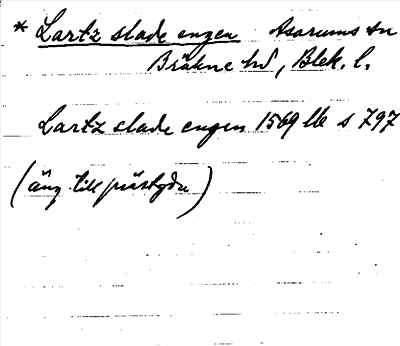 * Lartz slade engen Asarums sn
Bräkne hd, Blek. l.
Lartz slade engen 1569 llb s 797
(äng till prästgdn)